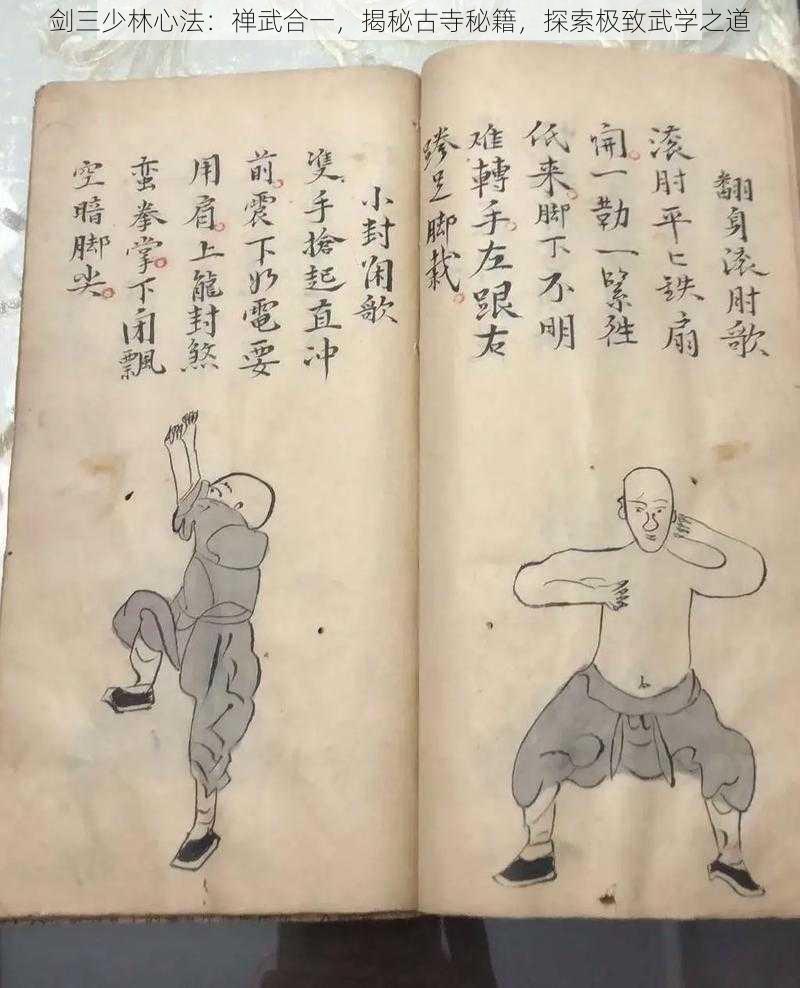 剑三少林心法：禅武合一，揭秘古寺秘籍，探索极致武学之道
翻身滚肘歌
滚肘平匕鉄扇
開一勒一緊
低来脚下不明
难轉手左跟右
跨足脚栽。
小封闭歌
雙手搶起直冲
前震下如電要
用肩上龍封煞
蛮拳掌下闭飄
空暗脚尖。